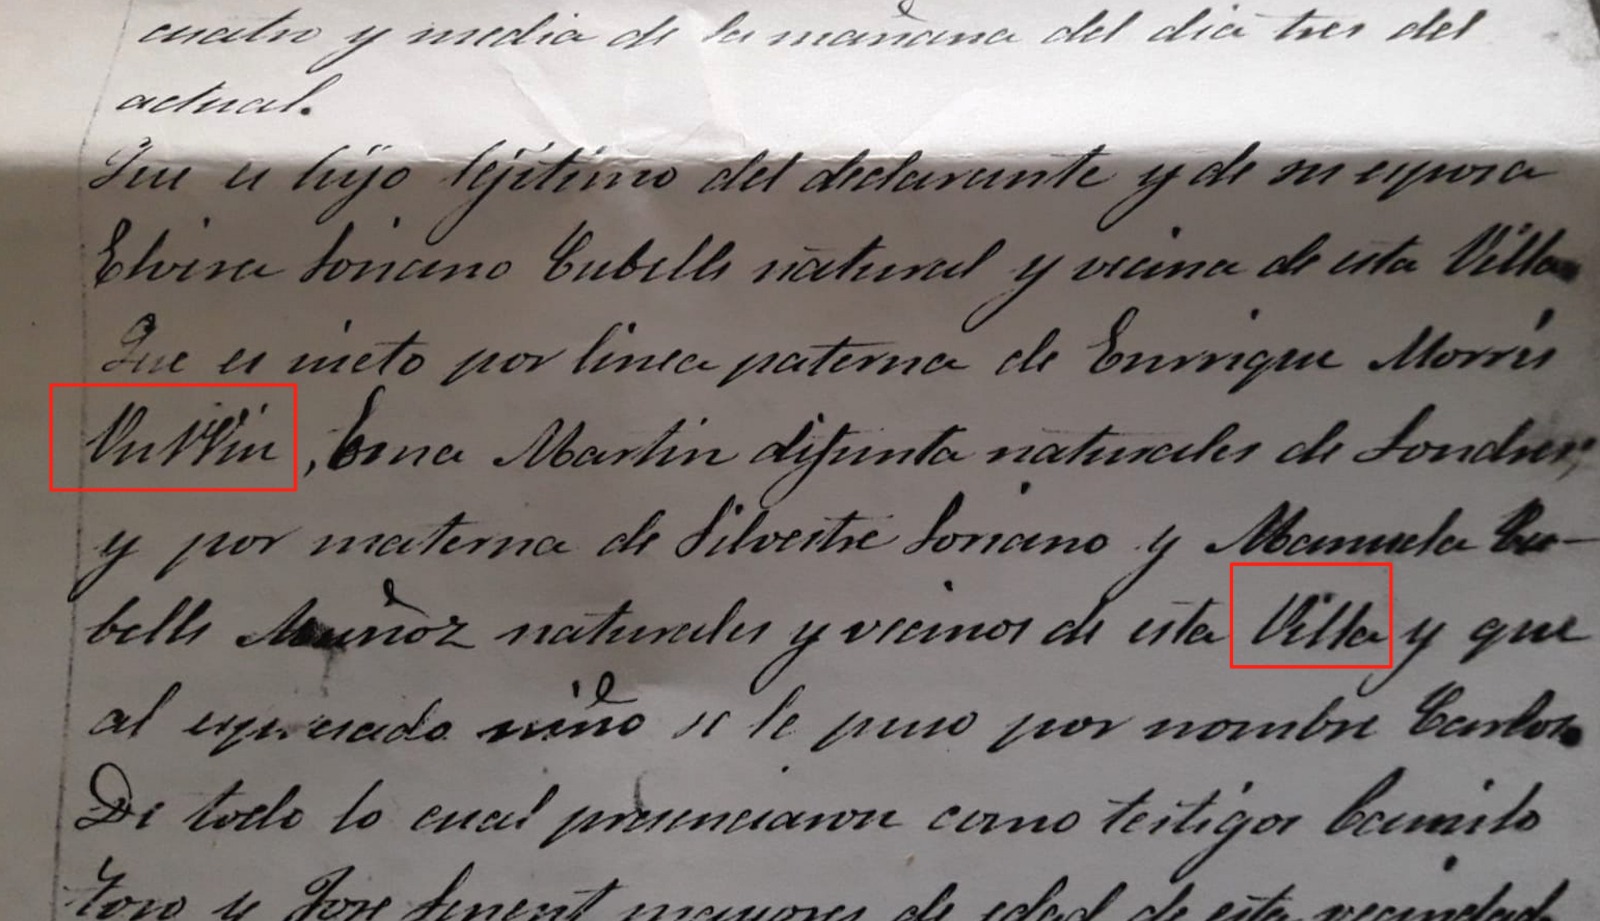 cuatro y media de la mañana del dia tres del
actual.
Que es hijo lejitimo del declarante y de su esposa
Elvira Soriano Cubells natural y vecina de esta Villa
Que es nieto por linea paterna de Enrrique Morris
, Ema Martin difunta naturales de Londres,
y por materna de Silvestre Soriano y Manuela Cu-
bells Muñoz naturales y vecinos de esta Villa y que
al espresado niño se le puso por nombre Carlos.
De todo lo cual presenciaron como testigos Camilo
Toro y Jose Senent mayores de edad de esta vecindad